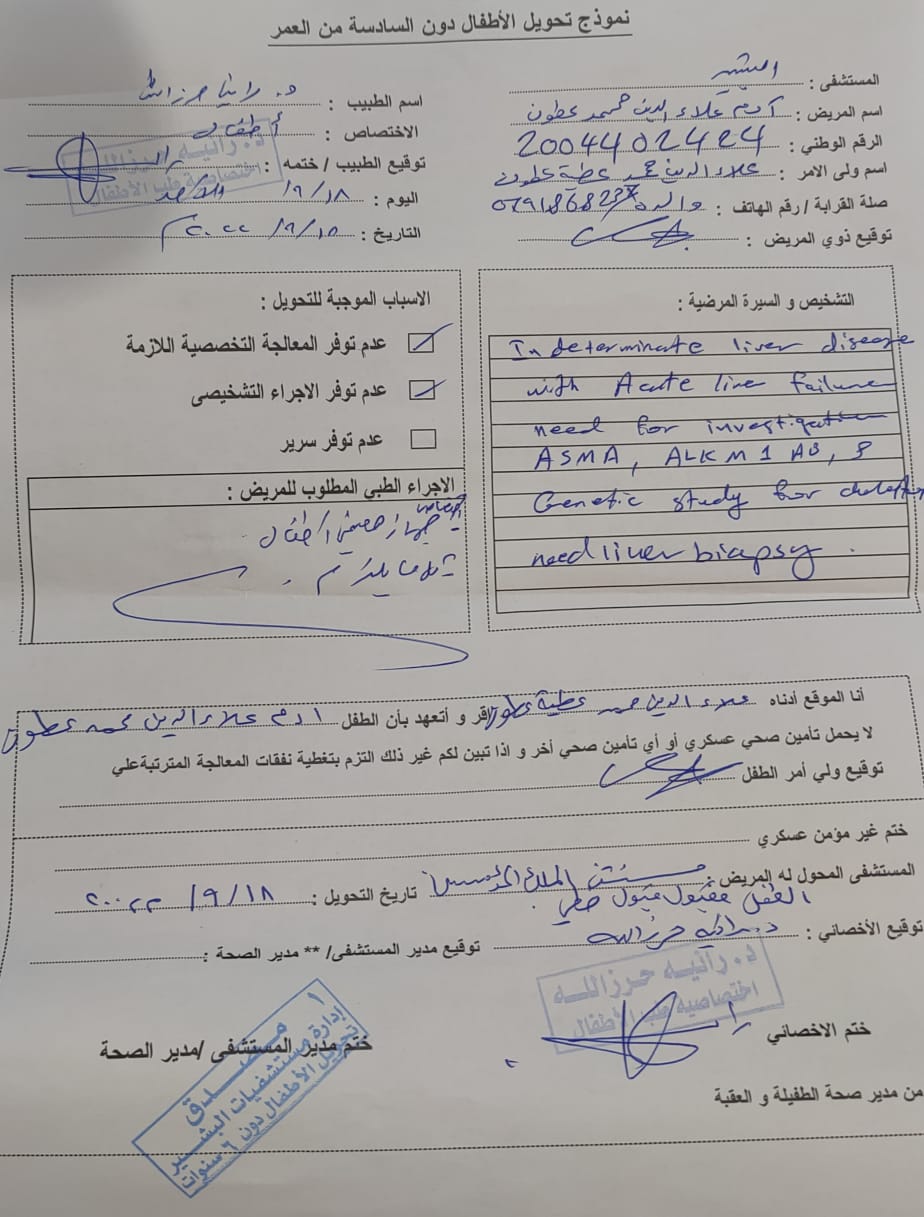 نموذج تحويل الأطفال دون السادسة من العمر
المستشفى : البشير
اسم المريض : آدم علاء الدين محمد عطون
الرقم الوطني : 2004402424
اسم ولي الامر : علاء الدين محمد عطية عطون
صلة القرابة / رقم الهاتف : والده
توقيع ذوي المريض :
اسم الطبيب : د. رانيا حرزالله
الاختصاص : أطفال
توقيع الطبيب / ختمه :
د. رانيه حرزالله
اختصاصية طب الأطفال
اليوم : الأحد ١٨/٩
التاريخ : ١٨/٩/٢٠٢٢م
التشخيص و السيرة المرضية :
Indeterminate liver disease
with Acute live failure
need for investigation
ASMA, ALKM1 AB, &
Genetic study for
need liver biopsy.
الاسباب الموجبة للتحويل :
عدم توفر المعالجة التخصصية اللازمة
عدم توفر الاجراء التشخيصى
عدم توفر سرير
الاجراء الطبي المطلوب للمريض :
جهاز هضمي أطفال
أنا الموقع أدناه علاء الدين محمد عطية عطون اقر و أتعهد بأن الطفل ادم علاء الدين محمد عطون
لا يحمل تأمين صحي عسكري أو أي تأمين صحي أخر و اذا تبين لكم غير ذلك التزم بتغطية نفقات المعالجة المترتبة علي
توقيع ولي أمر الطفل
ختم غير مؤمن عسكري
المستشفى المحول له المريض : مستشفى الملك المؤسس تاريخ التحويل : ١٨/٩/٢٠٢٢
الطفل مقبول قبول خطي
توقيع الأخصائي : د. رانية حرزالله توقيع مدير المستشفى/ ** مدير الصحة :
د. رانيه حرزالله
اختصاصيه طب الأطفال
ختم الاخصائي
ختم مدير المستشفى /مدير الصحة
مصدق
إدارة مستشفيات البشير
تحويل الأطفال دون ٦ سنوات
من مدير صحة الطفيلة و العقبة